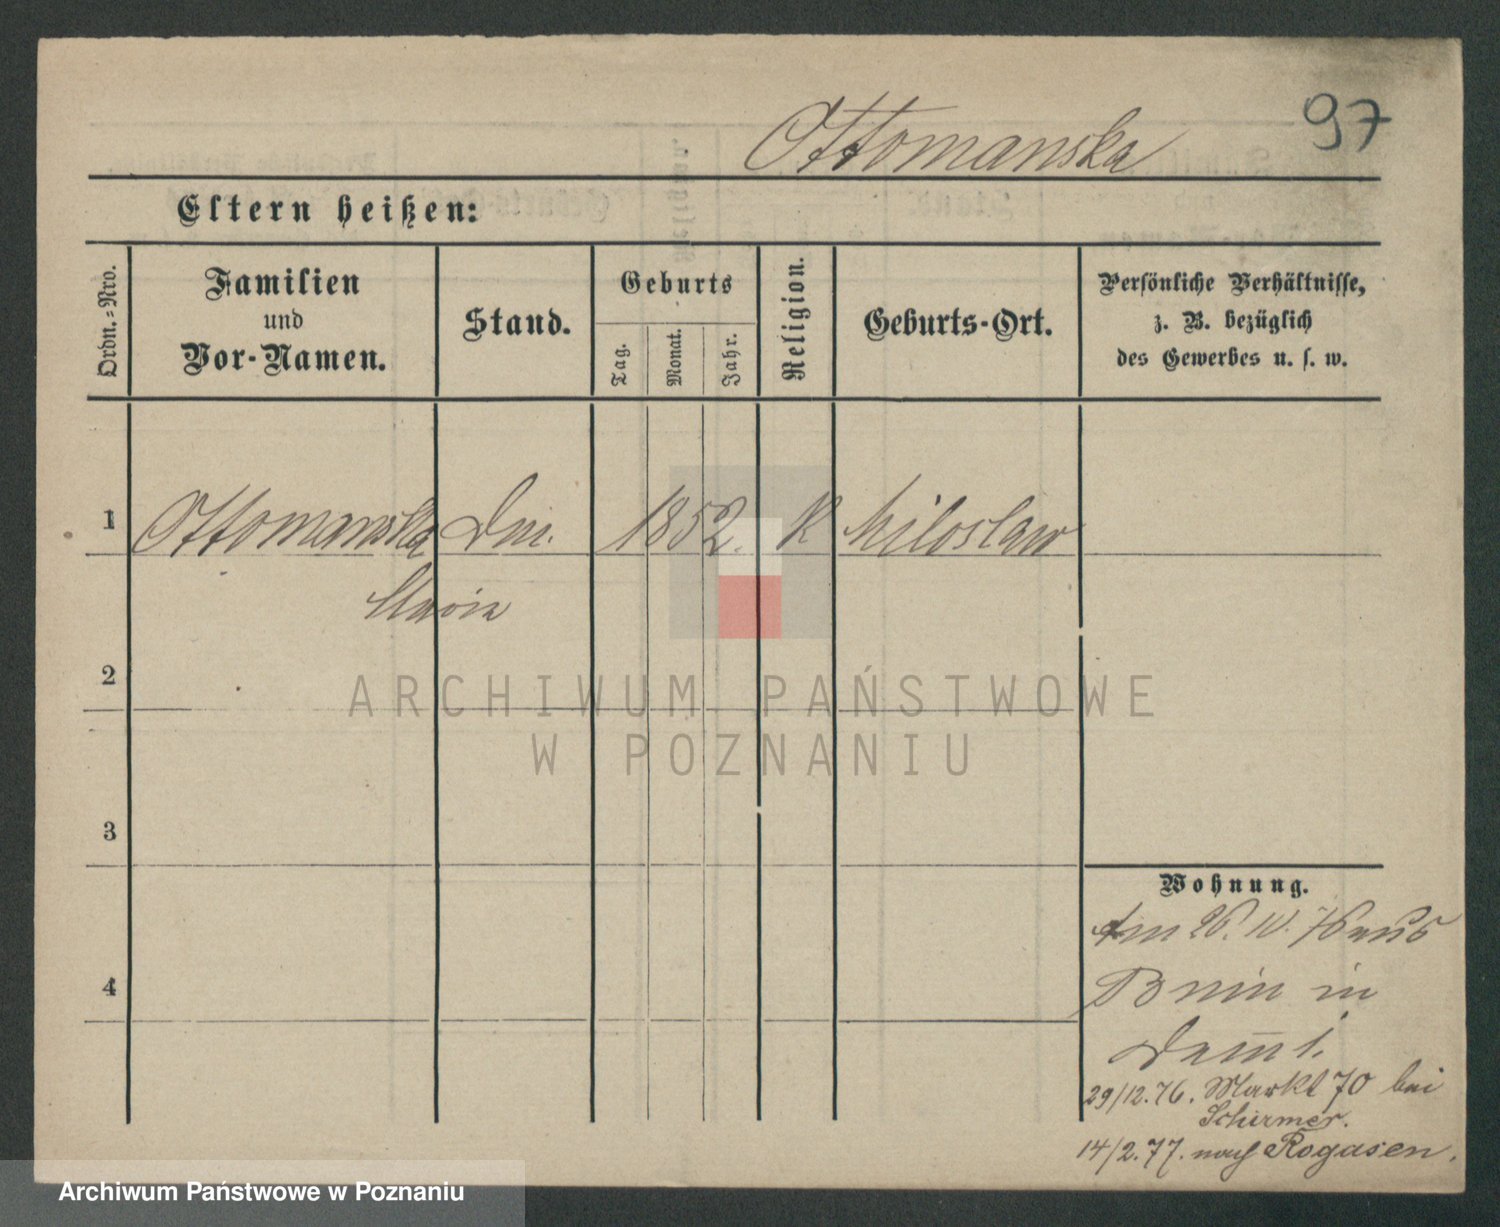 Ottomanska
97
Eltern heißen:
Ordn.-Nro.
Familien
und
Vor-Namen.
Stand.
Geburts
Tag.
Monat.
Jahr.
Religion.
Geburts-Ort.
Persönliche Verhältnisse,
z. B. bezüglich
des Gewerbes u. s. w.
1
Ottomanska
1852.
K
Miloslaw
Maria
2
ARCHIWUM PAŃSTWOWE
W POZNANIU
3
Wohnung.
Am 26. IV. 76 aus
4
Bnin in
Damm 1.
29/12.76. Markt 70 bei
Schirmer.
14/2.77. nach Rogasen.
Archiwum Państwowe w Poznaniu